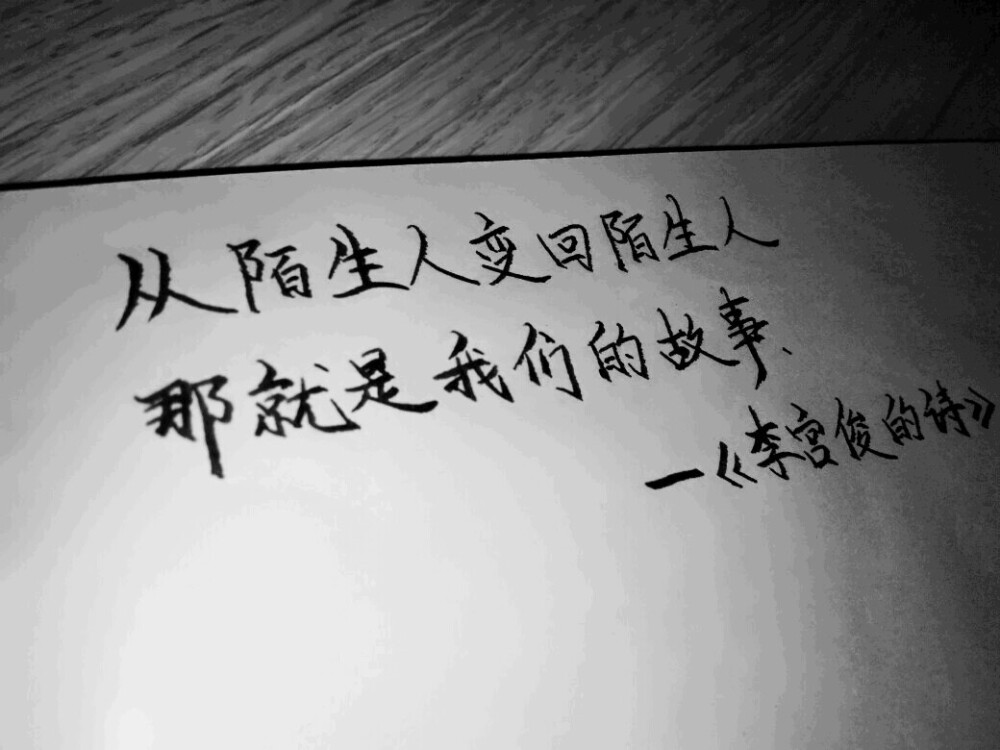 从陌生人变回陌生人
那就是我们的故事、
—《李宫俊的诗》